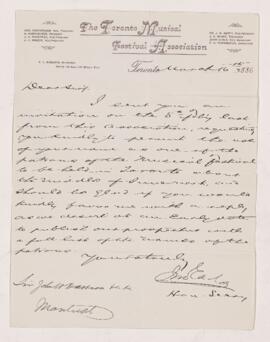 The Toronto Musical
Festival Association
Toronto March 16th 1886
Dear Sir,
I sent you an
invitation on the 5th Feby last
from this Association, requesting
you kindly to permit the use
of your name as one of the
patrons of the Musical Festival
to be held in Toronto about
the middle of June next, and
should be glad if you would
kindly favour me with a reply
as we desire at an early date
to publish our prospectus with
a full list of the names of the
patrons
Yours truly
Jno. Earls
Hon Secy
Sir J W Dawson
Montreal